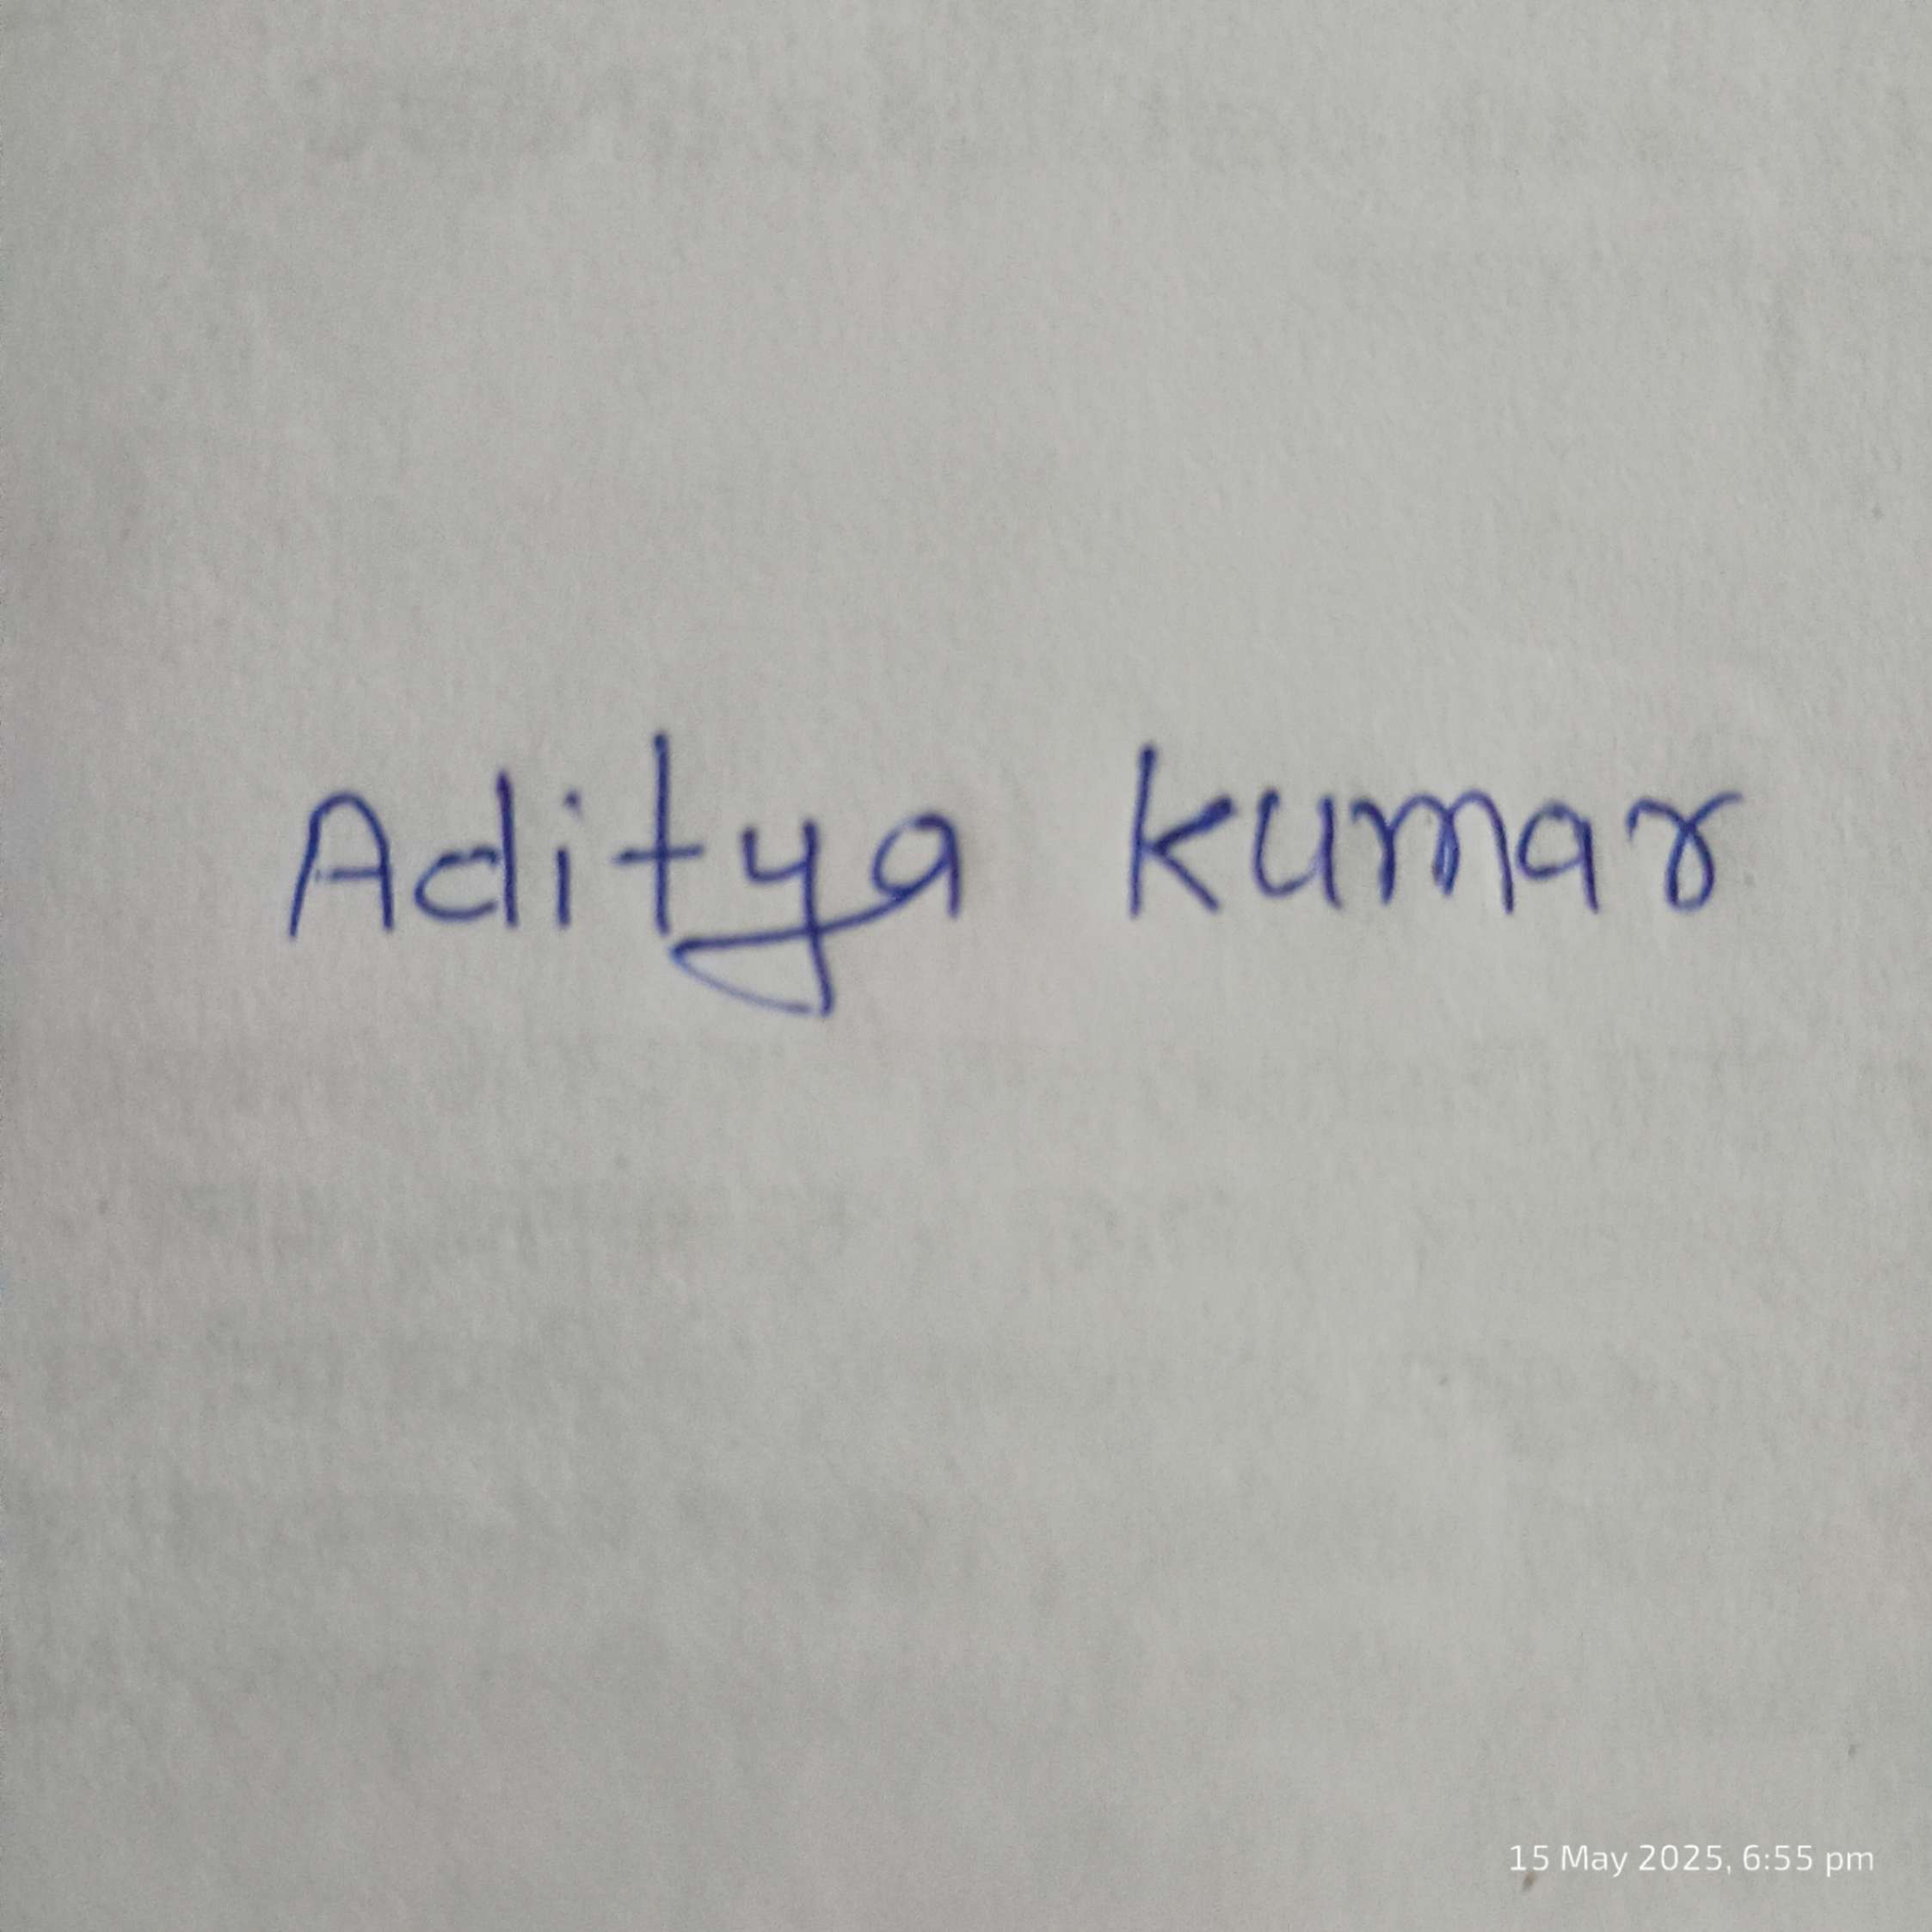 Aditya kumar
15 May 2025, 6:55 pm